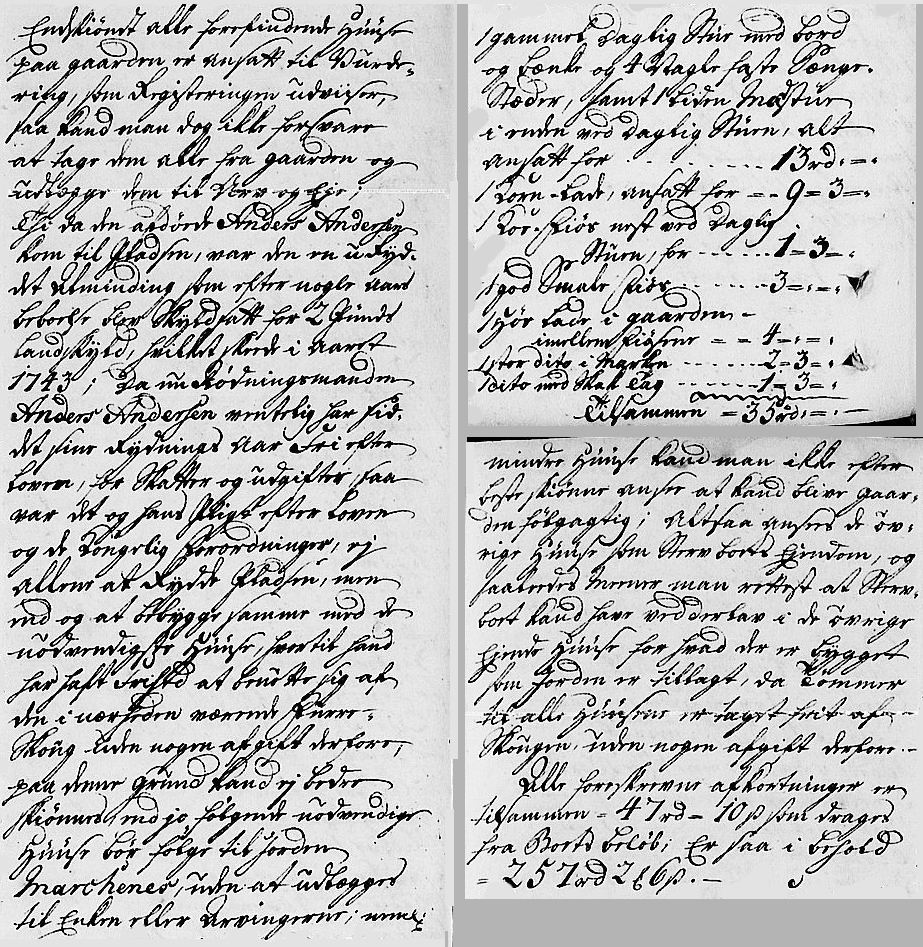 Endskiöndt alle forefindende Huuse
paa gaarden er ansatt til Vurde-
ring, som Registeringen udviser,
saa kand man dog ikke forsvare
at tage dem alle fra gaarden og
udlægge dem til Arv og Eje;
Thi da den afdøde Anders Andersen
kom til Pladsen, var den en uRyd-
det Alminding som efter nogle aars
beboelse blev Skyldsatt for 2 Punds
Landskyld, hvilket skeede i Aaret
1743; Da nu Rødningsmanden
Anders Andersen ventelig har sid-
det sine Rydnings Aar Fri efter
Loven, for Skatter og udgifter, saa
var det og hans Pligt efter Loven
og de Kongelig Forordninger, ej
allene at Rydde Pladsen, men
end og at bebygge samme med de
nødvendigste Huuse, hvortil hand
har haft Frihed at benötte sig af
den i nærheden værende Furre-
Skoug uden nogen afgift derfore;
paa denne Grund kand ej bedre
skiönnes, end jo følgende nødvendige
Huuse bør følge til Jorden
Marchenes, uden at udlægges
til Enken eller Arvingerne; neml:
1 gammel Daglig Stue med bord
og bænke og 4 Vægfaste Sænge-
Stæder, samt 1 liden Madstue
i enden ved Daglig Stuen, alt
ansatt for - - - - - - 13rd: = =
1 Korn-Lade, ansatt for = = 9 = 3 = =
1 Koe-fiös nest ved Daglig
Stuen, for - - - - - 1 = 3 = =
1 god Smale fiös - - - - - 3 = = =
1 Høe Lade i gaarden -
imellem fiösene = = 4 = = =
1 stor dito i Marken - - - - 2 = 3 = =
1 dito med Skak Tag - - - - 1 = 3 = =
Tilsammen = 35rd: = = -
mindre Huuse kand man ikke efter
beste skiönne ansee at kand blive gaar-
den fölgagtig; Altsaa ansees de öv-
rige Huuse som Sterv boets Ejendom, og
saaledes Meener man rettest at Sterv-
boet kand have vedderlav i de övrige
Ejende Huuse for hvad der er bygget
som Jorden er tillagt, da Tömmer
til alle Huusene er tagst frit af -
Skougen, uden nogen afgift derfore -
Alle foreskrevne afkortninger er
tilsammen = 47rd = 10s som drages
fra Boets belöb; Er saa i behold
= 257rd 2 8 6s. -